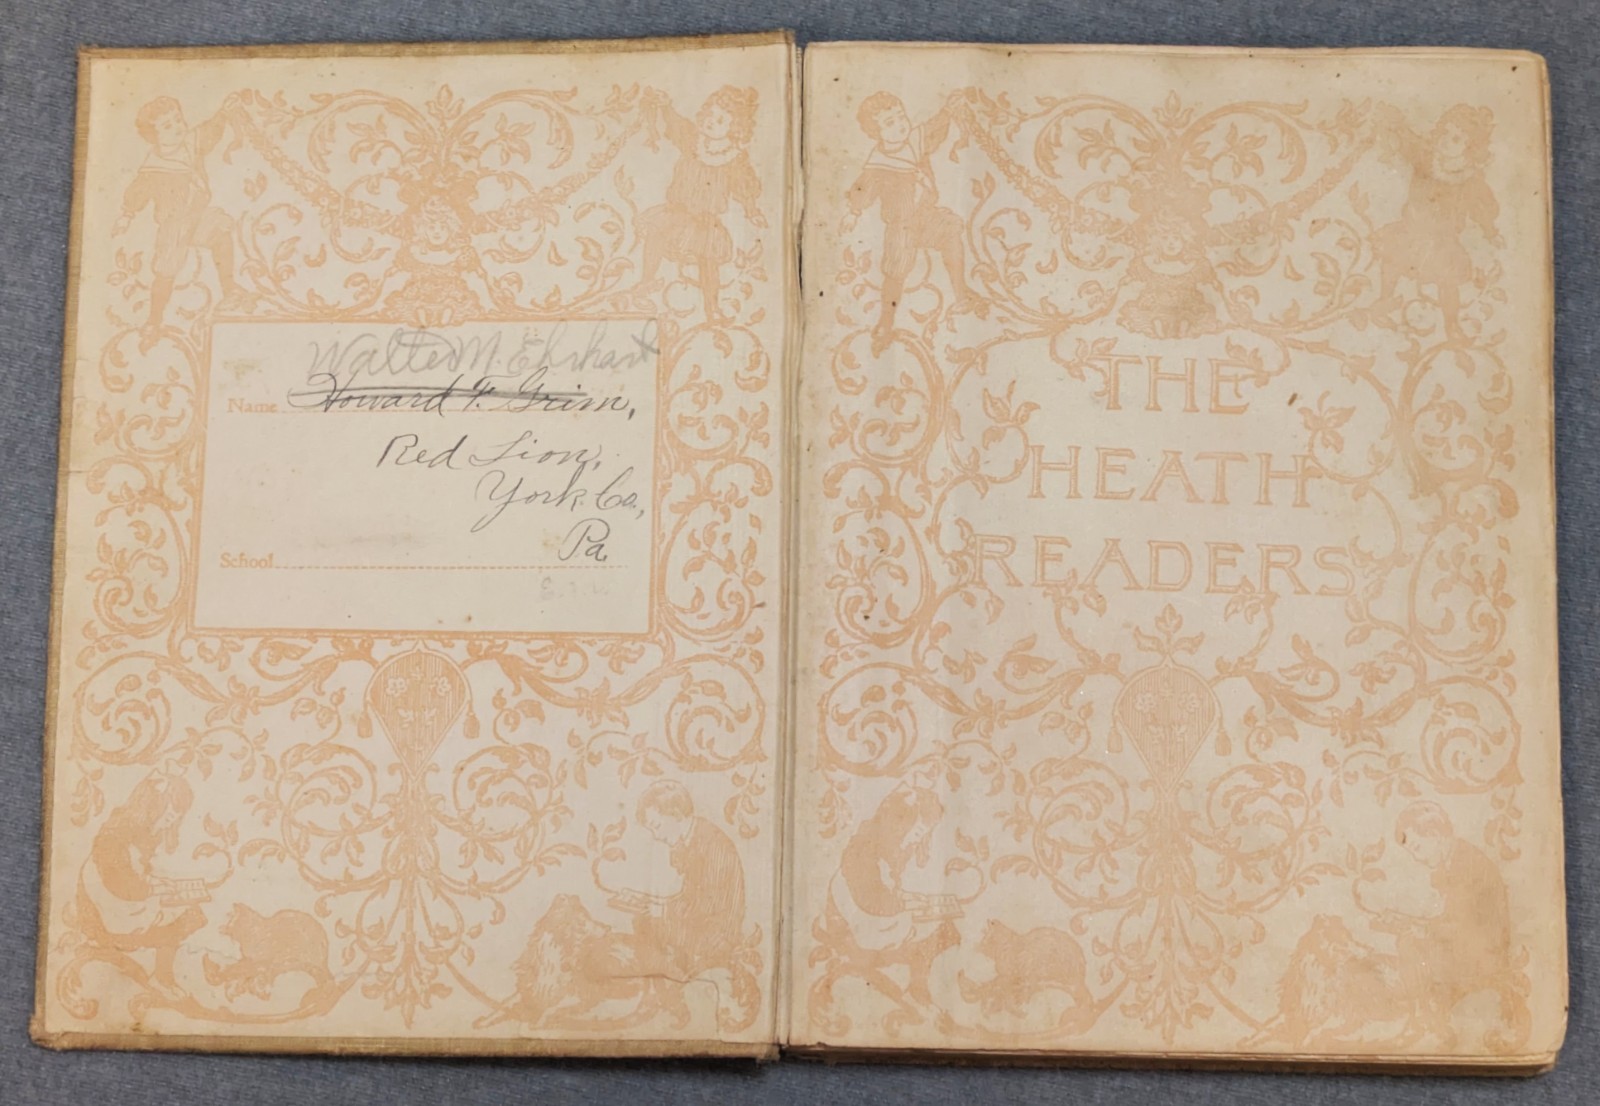 Walter N. Ehrhart
Name Howard F. Grim,
Red Lion,
York Co.,
Pa
School
THE
HEATH
READERS